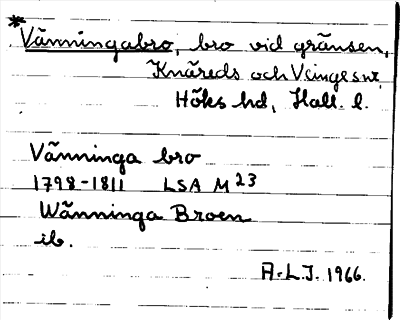 *Vänningabro, bro vid gränsen,
Knäreds och Veingesnr,
Höks hd, Hall. l.
Vänninga bro
1798-1811 LSA M 23
Wänninga Broen
ib.
A.L.J. 1966.